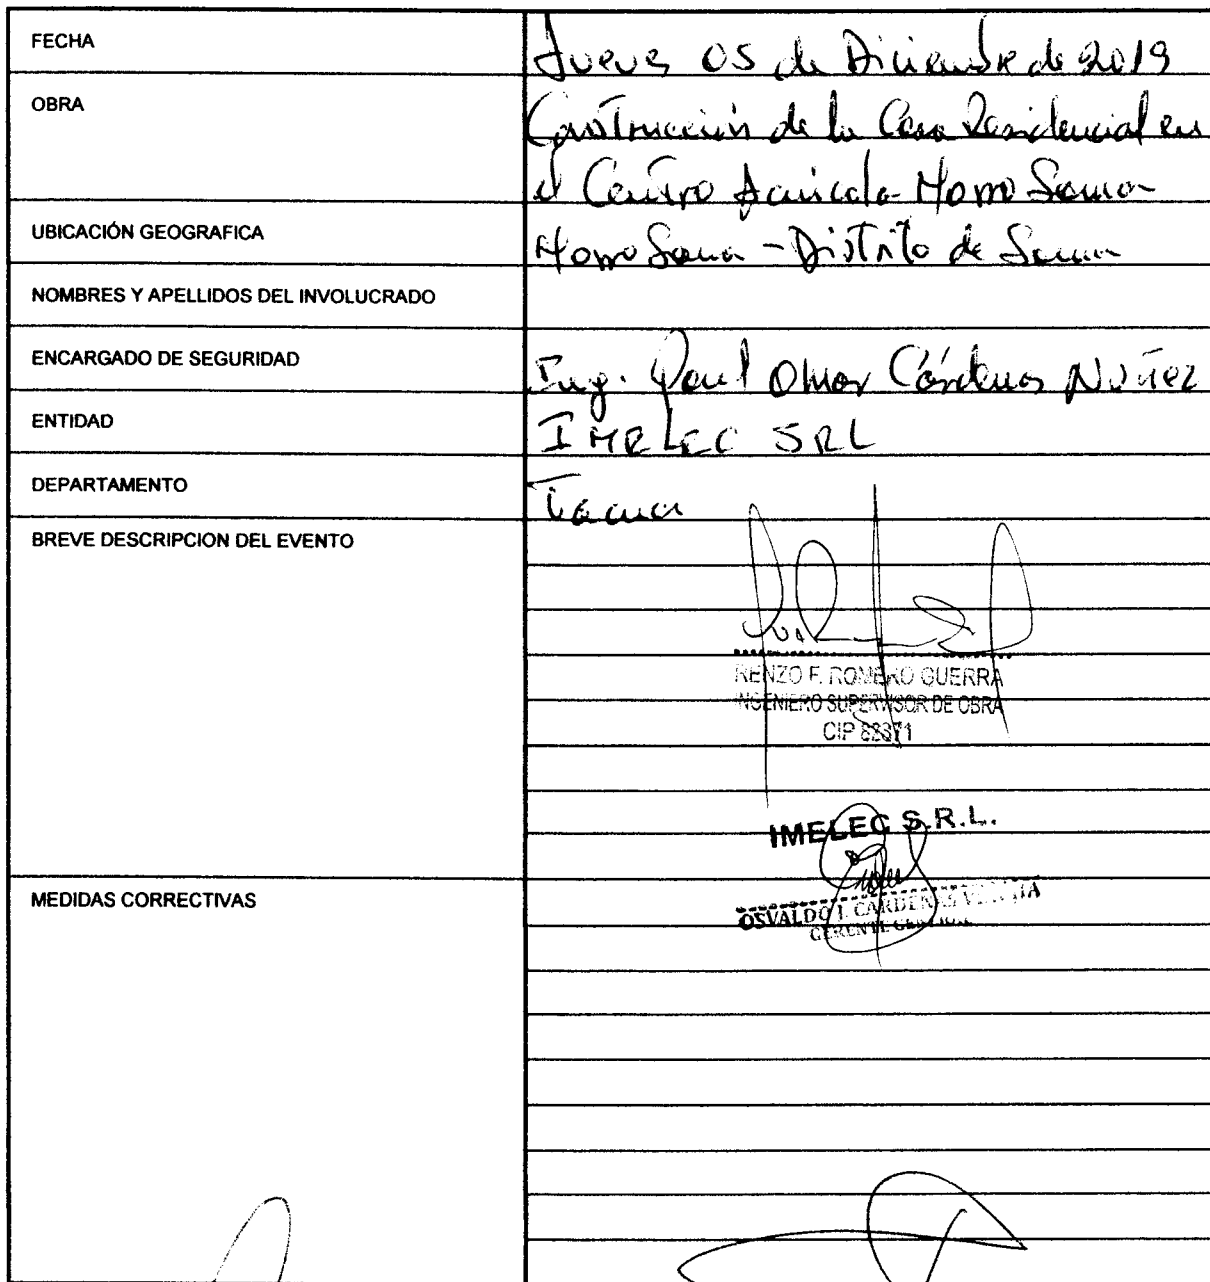 FECHA
Jueves 05 de Diciembre de 2019
OBRA
Construcción de la Casa Residencial en
el Centro Acuicola Morro Sama
UBICACIÓN GEOGRAFICA
Morro Sama - Distrito de Sama
NOMBRES Y APELLIDOS DEL INVOLUCRADO
ENCARGADO DE SEGURIDAD
Ing. Paul Omar Cárdenas Núñez
ENTIDAD
IMELEC SRL
DEPARTAMENTO
Tacna
BREVE DESCRIPCION DEL EVENTO
RENZO F. ROMERO GUERRA
INGENIERO SUPERVISOR DE OBRA
CIP
IMELEC S.R.L.
MEDIDAS CORRECTIVAS
OSVALDO I. CARDENAS
GERENTE GENERAL